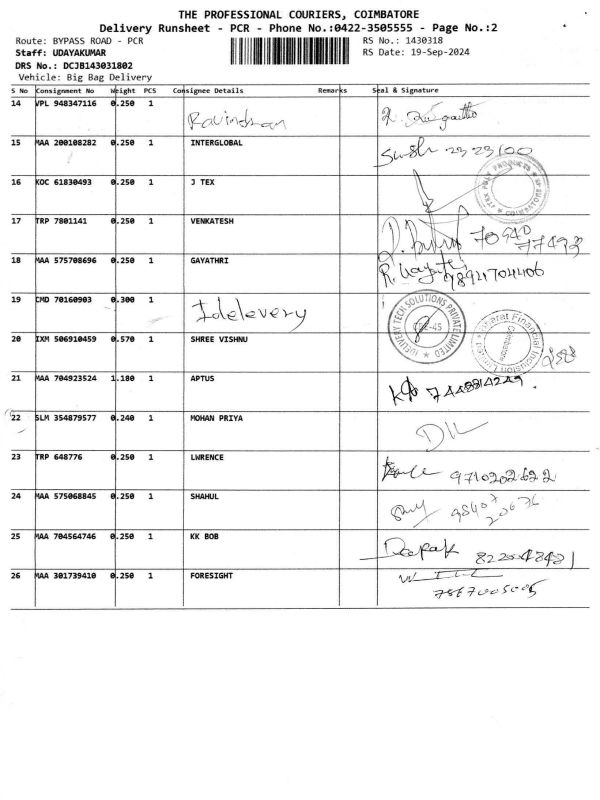 THE PROFESSIONAL COURIERS, COIMBATORE
Delivery Runsheet - PCR - Phone No.:0422-3505555 - Page No.:2
Route: BYPASS ROAD - PCR RS No.: 1430318
Staff: UDAYAKUMAR RS Date: 19-Sep-2024
DRS No.: DCJB143031802
Vehicle: Big Bag Delivery
S No Consignment No Weight PCS Consignee Details Remarks Seal & Signature
14 VPL 948347116 0.250 1 Ravindran
15 MAA 200108282 0.250 1 INTERGLOBAL
16 KOC 61830493 0.250 1 J TEX
17 TRP 7801141 0.250 1 VENKATESH 70940 77493
18 MAA 575708696 0.250 1 GAYATHRI R. Gayatri
19 CMD 70160903 0.300 1 Idelevery
20 IXM 506910459 0.570 1 SHREE VISHNU
21 MAA 704923524 1.180 1 APTUS
22 SLM 354879577 0.240 1 MOHAN PRIYA
23 TRP 648776 0.250 1 LWRENCE 9710202622
24 MAA 575068845 0.250 1 SHAHUL
25 MAA 704564746 0.250 1 KK BOB Deepak
26 MAA 301739410 0.250 1 FORESIGHT